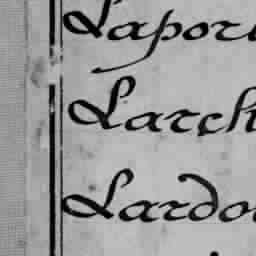 Lapor
Larch
Lardo